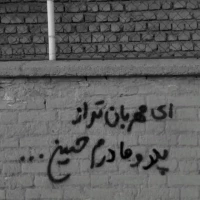 ای مهربان تر از
پدر و مادرم حسین ...